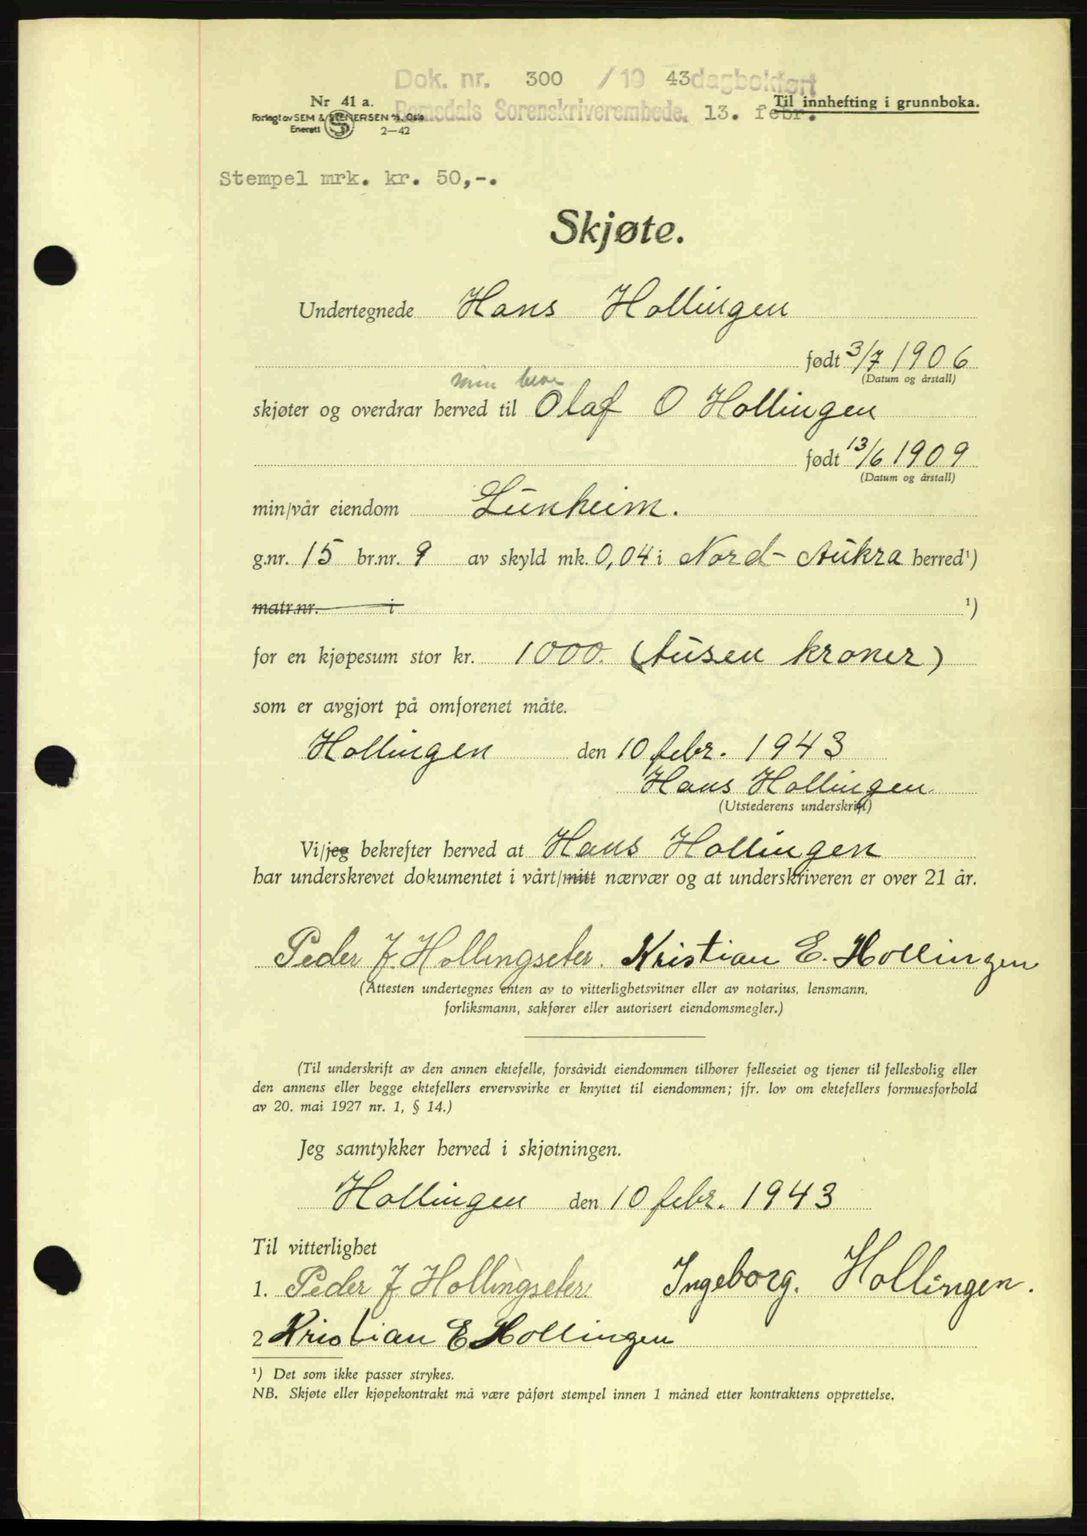 Dok. nr. 300 /19 43 dagbokført
Nr 41 a. Til innhefting i grunnboka.
Forlagt av SEM & STENERSEN A/S, Oslo Romsdals Sorenskriverembede. 13. febr.
Enerett 2—42
Stempel mrk. kr. 50,-.
Skjøte.
Undertegnede Hans Hollingen
født 3/7 1906
(Datum og årstall)
min bror
skjøter og overdrar herved til Olaf O Hollingen
født 13/6 1909
(Datum og årstall)
min/vår eiendom Lunheim.
g.nr. 15 br.nr. 9 av skyld mk. 0,04 i Nord-Aukra herred¹)
matr.nr. i ¹)
for en kjøpesum stor kr. 1000. (tusen kroner)
som er avgjort på omforenet måte.
Hollingen den 10 febr. 1943
Hans Hollingen
(Utstederens underskrift)
Vi/jeg bekrefter herved at Hans Hollingen
har underskrevet dokumentet i vårt/mitt nærvær og at underskriveren er over 21 år.
Peder J. Hollingseter. Kristian E. Hollingen
(Attesten undertegnes enten av to vitterlighetsvitner eller av notarius, lensmann,
forliksmann, sakfører eller autorisert eiendomsmegler.)
(Til underskrift av den annen ektefelle, forsåvidt eiendommen tilhører felleseiet og tjener til fellesbolig eller
den annens eller begge ektefellers ervervsvirke er knyttet til eiendommen; jfr. lov om ektefellers formuesforhold
av 20. mai 1927 nr. 1, § 14.)
Jeg samtykker herved i skjøtningen.
Hollingen den 10 febr. 1943
Til vitterlighet
1. Peder J Hollingseter Ingeborg. Hollingen.
2 Kristian E Hollingen
¹) Det som ikke passer strykes.
NB. Skjøte eller kjøpekontrakt må være påført stempel innen 1 måned etter kontraktens opprettelse.